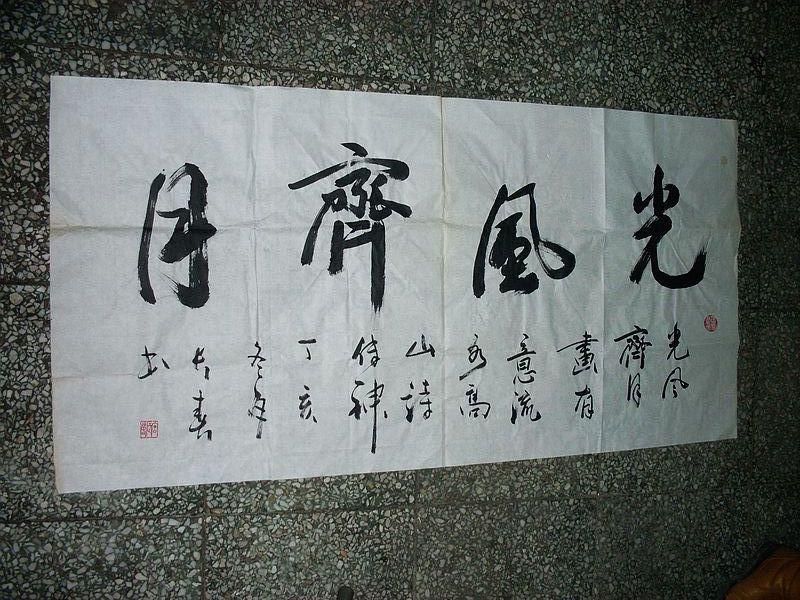 光風齊月
光风
齊月
畫有
意流
水高
山詩
传神
丁亥
冬月
长春
书